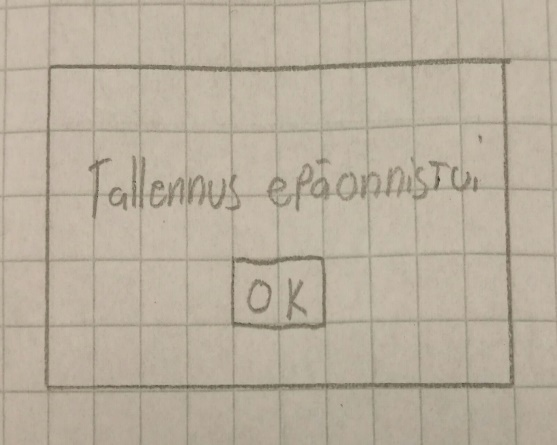 Tallennus epäonnistui
OK